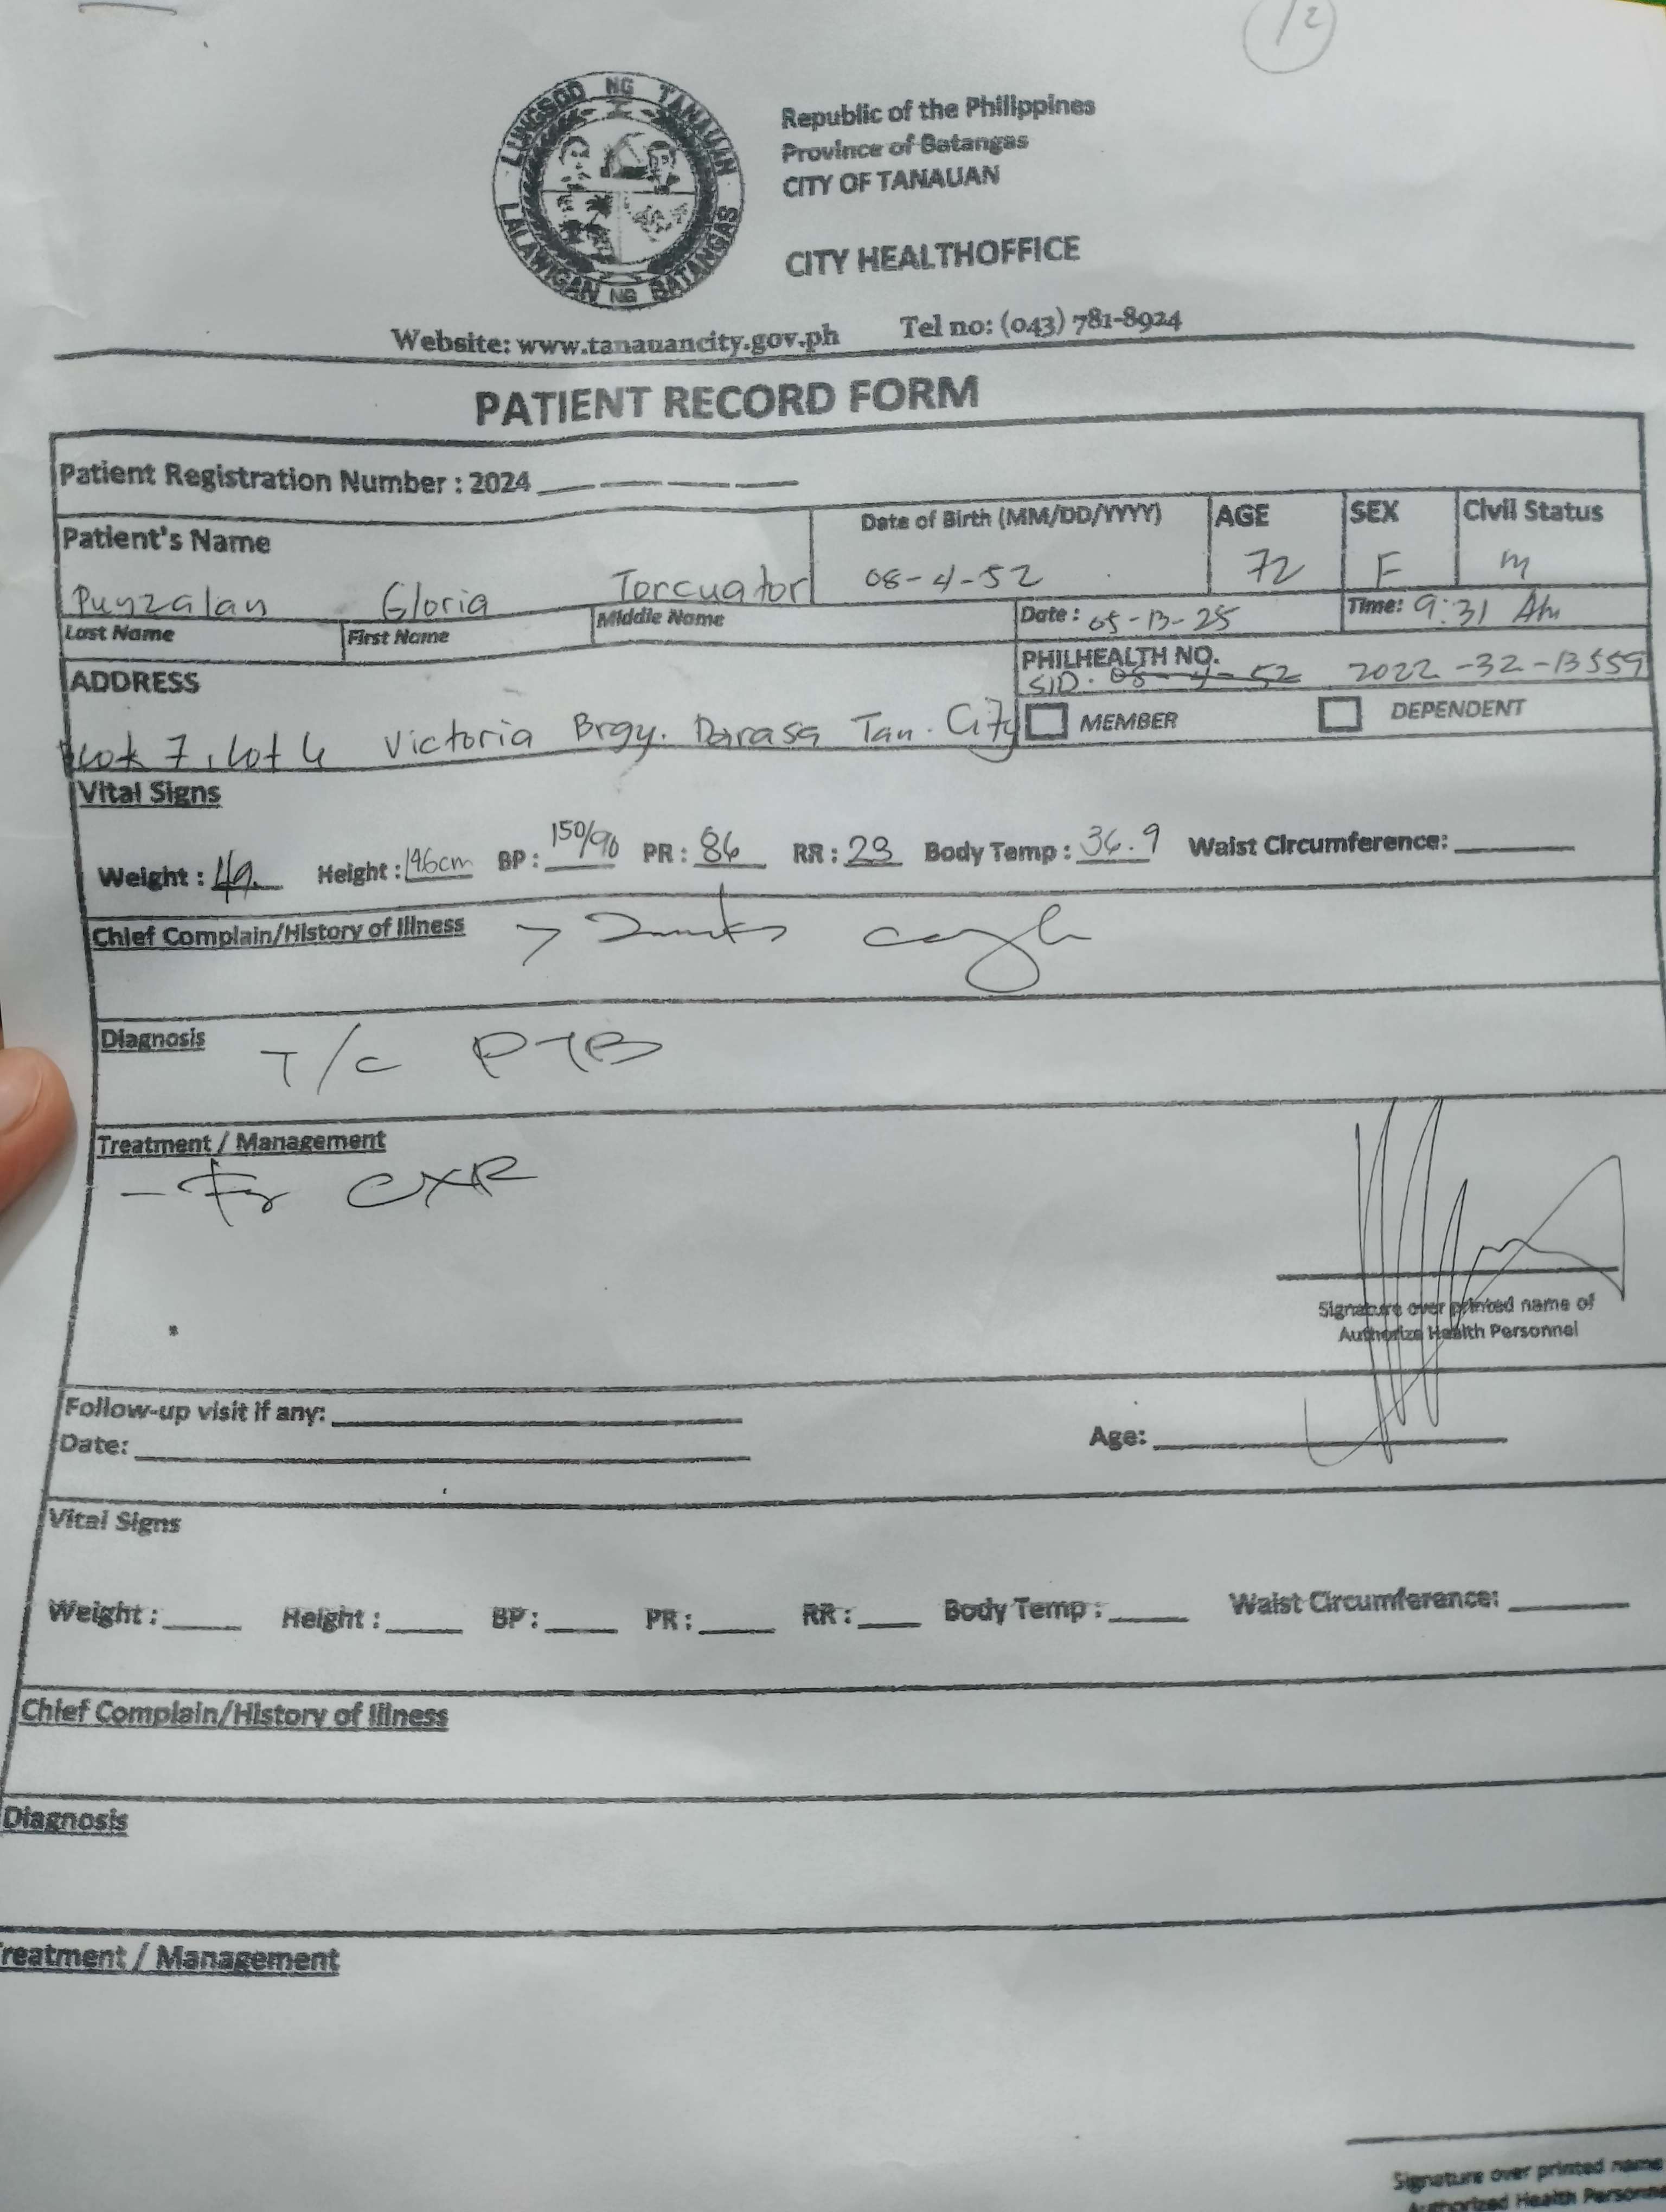 12
LUNGSOD NG TANAUAN
LALAWIGAN NG BATANGAS
Republic of the Philippines
Province of Batangas
CITY OF TANAUAN
CITY HEALTHOFFICE
Website: www.tanauancity.gov.ph Tel no: (043) 781-8924
PATIENT RECORD FORM
Patient Registration Number : 2024
Patient's Name Date of Birth (MM/DD/YYYY) AGE SEX Civil Status
Punzalan Gloria Torcuator 08-4-52 72 F M
Last Name First Name Middle Name Date : 05-13-25 Time: 9:31 AM
ADDRESS PHILHEALTH NO.
SID. 08-4-52 2022-32-13559
7, Lot 6 Victoria Brgy. Darasa Tan. City MEMBER DEPENDENT
Vital Signs
Weight : 49 Height : 146cm BP : 150/90 PR : 86 RR : 23 Body Temp : 36.9 Waist Circumference:
Chief Complain/History of Illness > cough
Diagnosis T/C PTB
Treatment / Management
- For CXR
Signature over printed name of
Authorize Health Personnel
Follow-up visit if any:
Date: Age:
Vital Signs
Weight : Height : BP : PR : RR : Body Temp : Waist Circumference:
Chief Complain/History of Illness
Diagnosis
reatment / Management
Signature over printed name
Authorized Health Personne